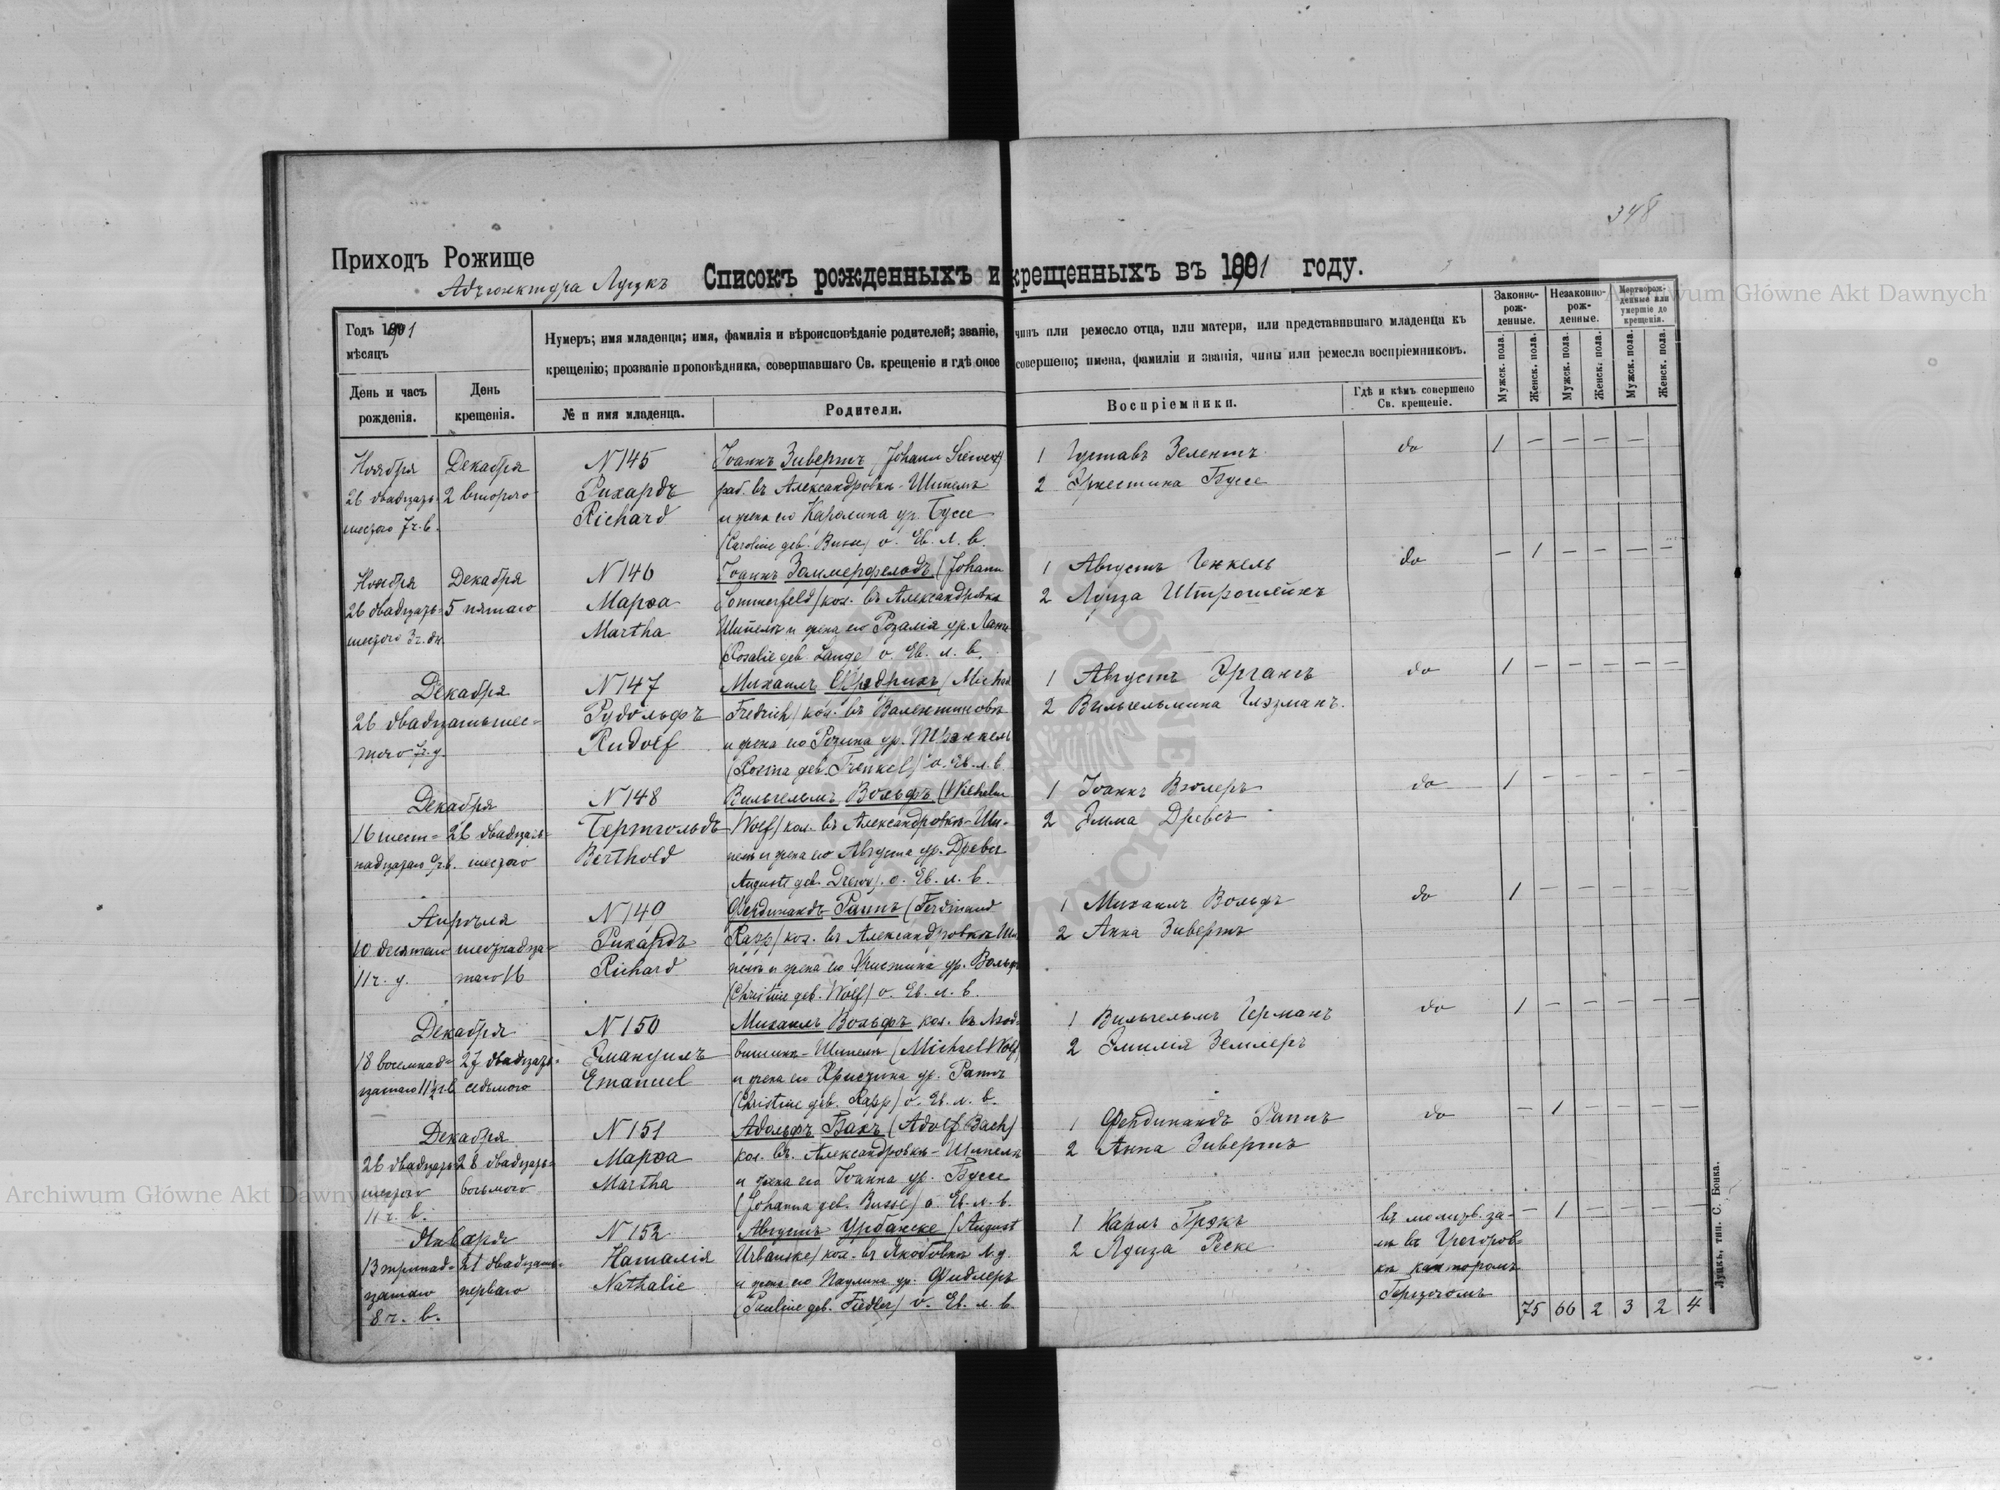 348
Приходъ Рожище
Адъюнктура Луцкъ
Списокъ рожденныхъ и крещенныхъ въ 1901 году.
Годъ 1901
мѣсяцъ
День и часъ
рожденія.
День
крещенія.
Нумеръ; имя младенца; имя, фамилія и вѣроисповѣданіе родителей; званіе, чинъ или ремесло отца, или матери, или представившаго младенца къ
крещенію; прозваніе проповѣдника, совершавшаго Св. крещеніе и гдѣ оное совершено; имена, фамиліи и званія, чины или ремесла воспріемниковъ.
№ и имя младенца.
Родители.
Воспріемники.
Гдѣ и кѣмъ совершено
Св. крещеніе.
Законно-
рож-
денные.
Незаконно-
рож-
денные.
Мертворож-
денные или
умершіе до
крещенія.
Мужск. пола.
Женск. пола.
Мужск. пола.
Женск. пола.
Мужск. пола.
Женск. пола.
Ноября
26 двадцать
шестого 7 ч. в.
Декабря
2 второго
N 145
Рихардъ
Richard
Іоаннъ Зивертъ (Johann Siewert)
раб. въ Александровкѣ-Шипель
и жена его Каролина ур. Буссе
(Caroline geb. Busse) о. Ев. л. в.
1 Густавъ Зелентъ
2 Эрнестина Буссе
do
1 — — — —
Ноября
26 двадцать-
шестого 3 ч. дн.
Декабря
5 пятаго
N 146
Марѳа
Martha
Іоаннъ Зоммерфельдъ (Johann
Sommerfeld) кол. въ Александровкѣ
Шипель и жена его Розалія ур. Ланге
(Rosalie geb. Lange) о. Ев. л. в.
1 Августъ Генкель
2 Луиза Штрошейнъ
do
— 1 — — — —
Декабря
26 двадцатьшес-
того
N 147
Рудольфъ
Rudolf
Михаилъ Фредрихъ (Michael
Fredrich) кол. въ Валентиновкѣ
и жена его Розина ур. Тренкель
(Rosina geb. Trenkel) о. Ев. л. в.
1 Августъ
2 Вильгельмина
do
1 — — — — —
Декабря
16 шест-
надцатаго
26 двадцать
шестого
N 148
Бертгольдъ
Berthold
Вильгельмъ Вольфъ (Wilhelm
Wolf) кол. въ Александровкѣ-Ши-
пель и жена его Августа ур. Древсъ
(Auguste geb. Drews). о. Ев. л. в.
1 Іоаннъ
2 Эмма Древсъ
do
1 — — — — —
Апрѣля
10 десятаго
11 ч. у.
шестнадца-
таго 16
N 149
Рихардъ
Richard
Фердинандъ Раппъ (Ferdinand
Rapp) кол. въ Александровкѣ Ши-
пель и жена его Христина ур. Вольфъ
(Christine geb. Wolf) о. Ев. л. в.
1 Михаилъ Вольфъ
2 Анна Зивертъ
do
1 — — — — —
Декабря
18 восемнад-
цатаго 11½ ч. в.
27 двадцать-
седьмого
N 150
Эмануилъ
Emanuel
Михаилъ Вольфъ кол. въ Люд-
вишинъ-Шипель (Michael Wolf)
и жена его Христина ур. Раппъ
(Christine geb. Rapp) о. Ев. л. в.
1 Вильгельмъ Германъ
2 Эмилія Землеръ
do
1 — — — — —
Декабря
26 двадцать
шестого
11 ч. в.
28 двадцать-
восьмого
N 151
Марѳа
Martha
Адольфъ Бахъ (Adolf Bach)
кол. въ. Александровкѣ-Шипель
и жена его Іоанна ур. Буссе
(Johanna geb. Busse) о. Ев. л. в.
1 Фердинандъ Раппъ
2 Анна Зивертъ
do
— 1 — — — —
Января
13 тринад-
цатаго
8 ч. в.
21 двадцать-
перваго
N 152
Наталія
Nathalie
Августъ Урбанске (August
Urbanske) кол. въ Якобовкѣ л. у.
и жена его Паулина ур. Фидлеръ
(Pauline geb. Fiedler) о. Ев. л. в.
1 Карлъ
2 Луиза Реске
въ молитв. за-
лѣ въ
кѣ канторомъ
— 1 — — — —
75 66 2 3 2 4
Луцкъ, тип. С. Бонка.
Archiwum Główne Akt Dawnych
Archiwum Główne Akt Dawnych